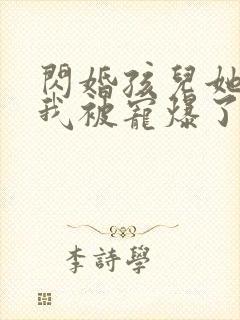 閃婚孩兒她
我被寵爆了
李詩學